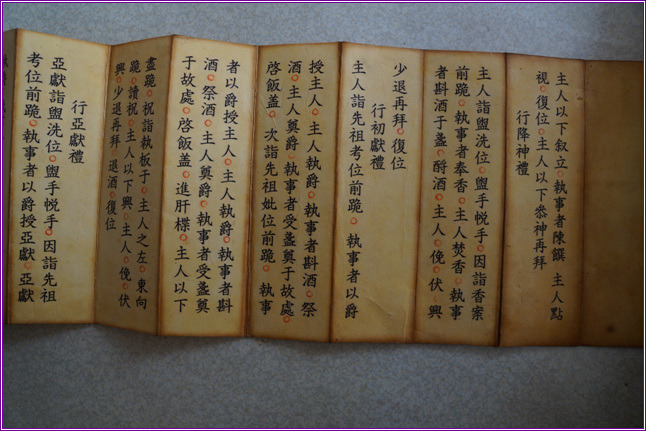 主人以下叙立○執事者陳饌 主人點
視○復位○主人以下叅神再拜
行降神禮
主人詣盥洗位○盥手帨手○因詣香案
前跪○執事者奉香○主人焚香○執事
者斟酒于盞○酹酒○主人○俛○伏○興
少退再拜○復位
行初獻禮
主人詣先祖考位前跪○執事者以爵
授主人○主人執爵○執事者斟酒○祭
酒○主人奠爵○執事者受盞奠于故處○
啓飯盖○次詣先祖妣位前跪○執事
者以爵授主人○主人執爵○執事者斟
酒○祭酒○主人奠爵○執事者受盞奠
于故處○啓飯盖○進肝楪○主人以下
盡跪○祝詣執板于○主人之左○東向
跪○讀祝○主人以下興○主人○俛○伏
興○少退再拜 退酒○復位
行亞獻禮
亞獻詣盥洗位○盥手帨手○因詣先祖
考位前跪○執事者以爵授亞獻○亞獻